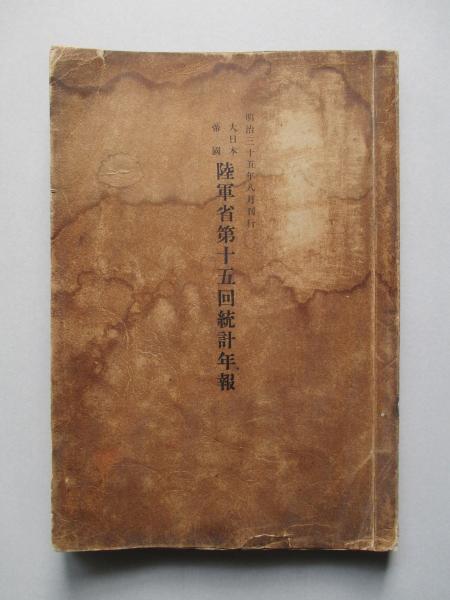 明治三十五年八月刊行
大日本
帝國
陸軍省第十五回統計年報